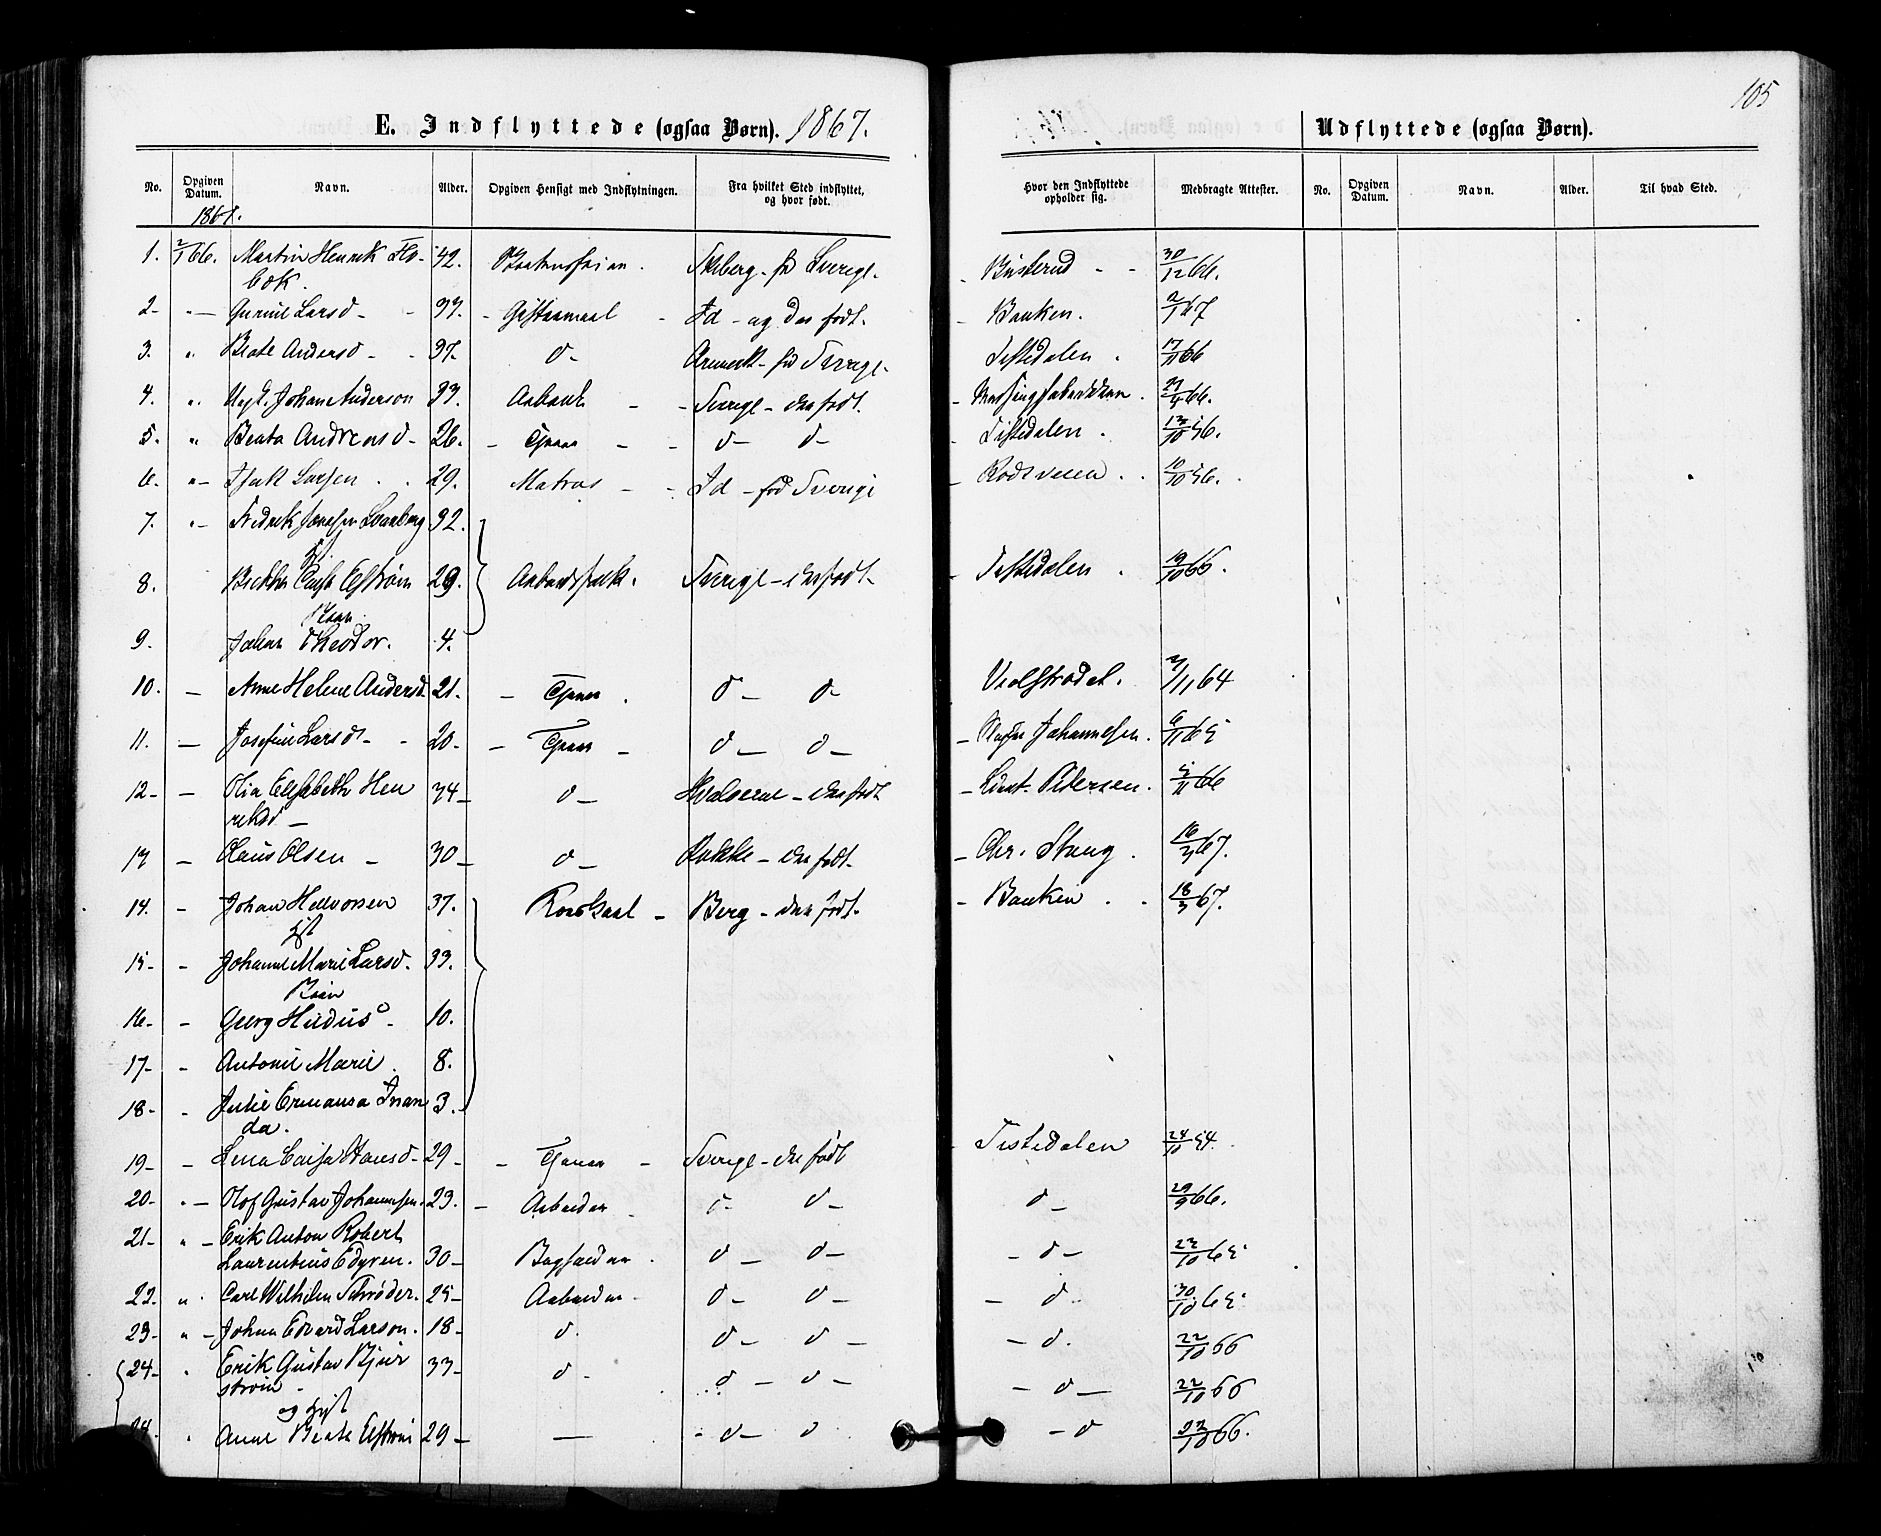 105
E. Indflyttede (ogsaa Børn). 1867.
Udflyttede (ogsaa Børn).
No. Opgiven Datum. Navn. Alder. Opgiven Hensigt med Indflytningen. Fra hvilket Sted indflyttet, og hvor født. Hvor den Indflyttede opholder sig. Medbragte Attester. No. Opgiven Datum. Navn. Alder. Til hvad Sted.
1. Martin Henrik Ho- 42. Skeberg - fd Sverige. Busterud - - 30/12 66.
bok.
2 - " - Gurine Larsd - - 33. - Giftermaal - Id - og der født. - Banken. 2/1 67
3. " Beate Andersd - - 37. d - Aremark - fd Sverige - Tistedalen . 17/11 66
4. " Ungk. Johan Anderson 33. Arbeid - - Sverige - der født.
5. " Beata Andreasd - 26. - Tjener - - d - d - - Tistedalen . 13/10 56.
6. " - Larsen . . 29. Matros - - Id - fød Sverige - Rødsveien . . 10/10 56.
7. " - Fredrik 32.
Hst.
8. Elfstrøm 29. Arbeidsfolk. Sverige - der født. - Tistedalen . 19/10 66.
9. Johan Theodor. 4.
10. - Anne Helene Andersd. 21. - Tjener . d - d -
11. - Josefine Larsd - - 20. - Tjener - d - d - Johannesen . 6/11 65
12 - - Olia Elisabeth Hen 34 - d - Hvaløerne - der født - Lieut. Pedersen . 5/11 66
riksd -
13 - Claus Olsen - 30 - d - Rakke - der født. - Chr. Stang . 16/3 67.
14. - Johan Halvorsen 37. Berg - der født. - Banken . . 18/3 67.
Hst
15 - - Johanne Marie Larsd. 33.
Børn
16 - - Georg Hudius - 10.
17 - - Antonie Marie . 8.
18 - - Julie Ermansa Inan 3.
da.
19 - - Lena Caisa Hansd - 29 - - Tjener - Sverige - der født Tistedalen 24/10 54.
20 - " - Olof Gustav Johannesen . 23. - Arbeider d - d - d - 29/9 66.
21 - " - Erik Anton Robert
Laurentius Edgren . 30 - d - d - - d - 23/10 65
22. " Carl Wilhelm Schrøder. 25 - Arbeider - d - d - - d. 30/10 65
23 - " - Johan Edvard Larson . 18 - d. d - d - - d. 22/10 66
24 - Erik Gustav Bjur 33 - d - d - d - - d - 22/10 66
strøm -
og Hst
Anne Beate Elfstrøm 29 - — - d - d - d 22/10 66.